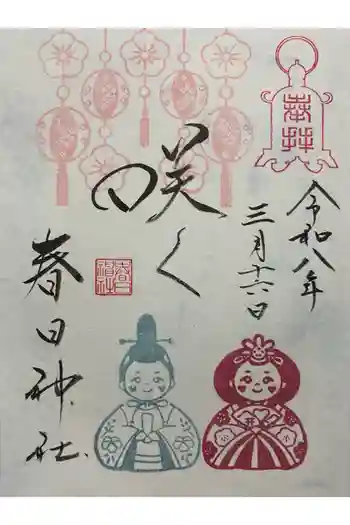 奉拝
令和八年
三月十六日
咲く
春日神社
春日神社